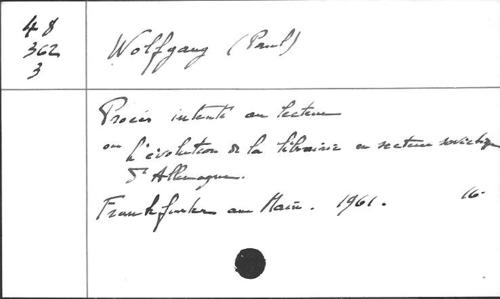 48
362
3
Wolfgang (Paul)
Procès intenté au lecteur
ou L'évolution de la librairie en secteur soviétique
d'Allemagne.
Frankfurter am Main. 1961. 16-